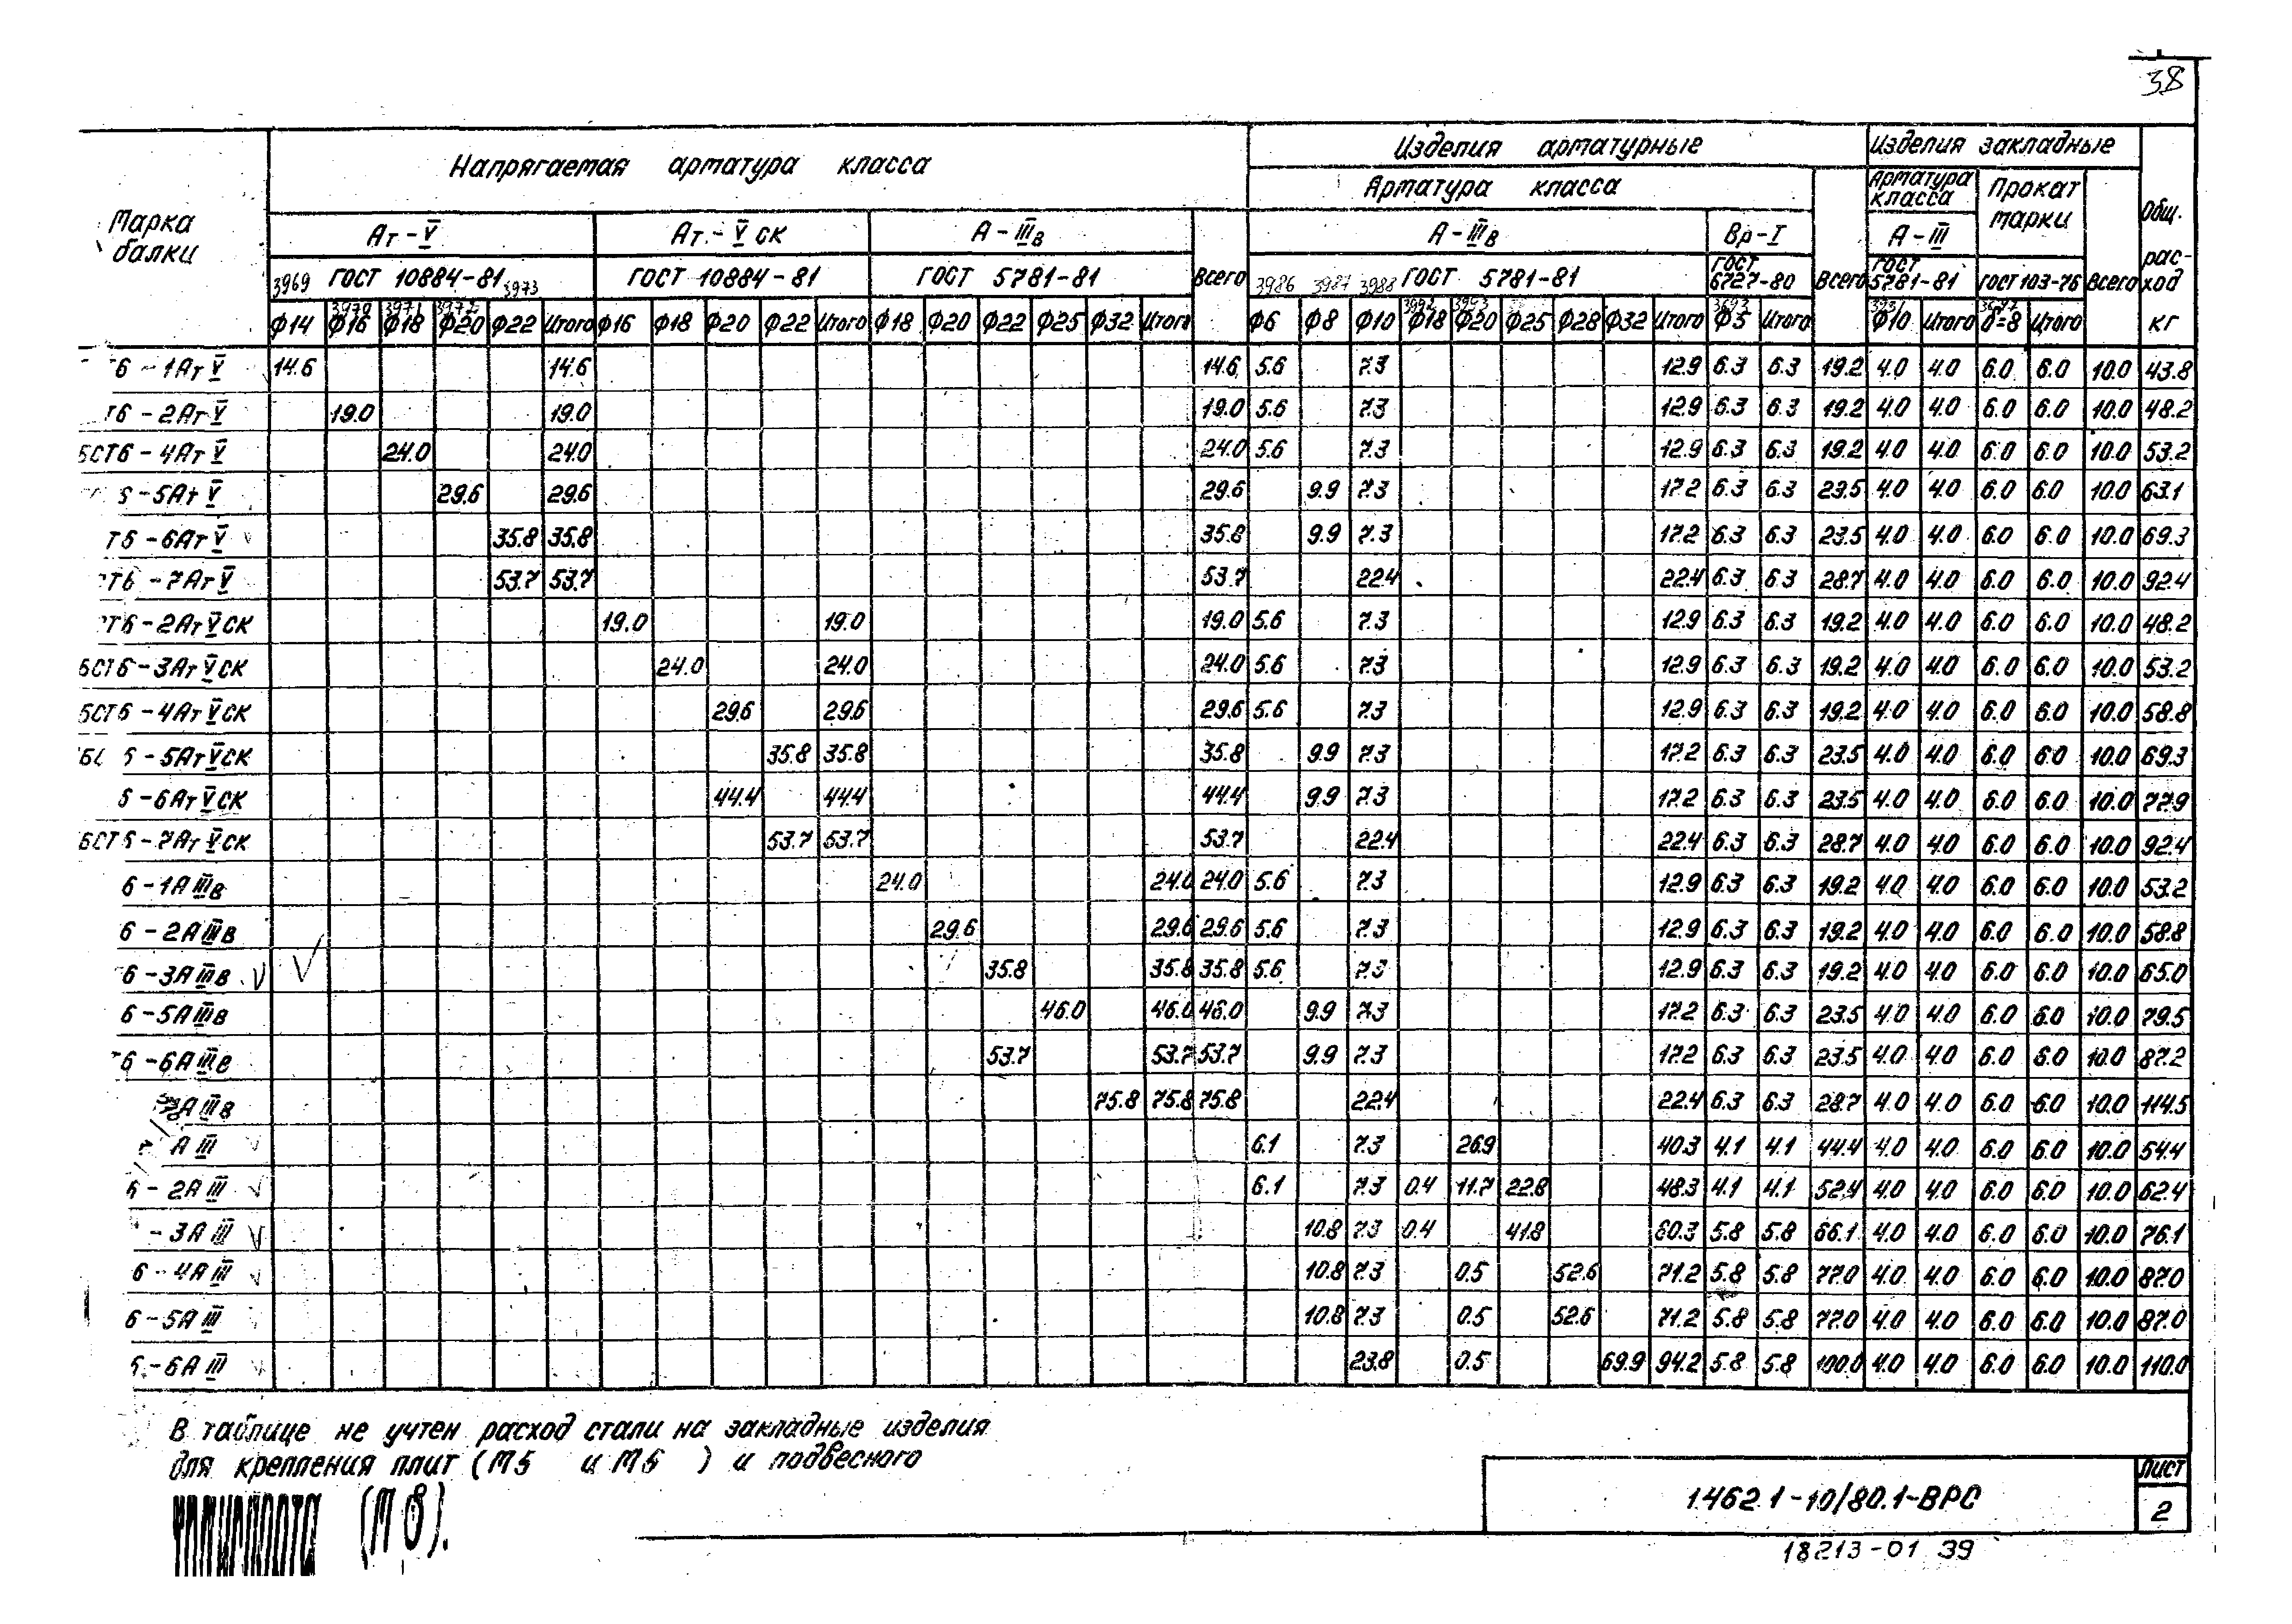 38
Марка балки
Напрягаемая арматура класса
Изделия арматурные
Изделия закладные
Общ. рас- ход кг
Арматура класса
Арматура класса
Прокат марки
Ат-V
Ат-V ск
А-IIIв
Всего
А-IIIв
Вр-I
Всего
А-III
Всего
3969 ГОСТ 10884-81 3973
ГОСТ 10884-81
ГОСТ 5781-81
3986 3987 3988 ГОСТ 5781-81
ГОСТ 6727-80
ГОСТ 5781-81
ГОСТ 103-76
3970 3971
Ф14 Ф16 Ф18 Ф20 Ф22 Итого Ф16 Ф18 Ф20 Ф22 Итого Ф18 Ф20 Ф22 Ф25 Ф32 Итого Ф6 Ф8 Ф10 Ф18 Ф20 Ф25 Ф28 Ф32 Итого Ф5 Итого Ф10 Итого δ=8 Итого
Т6-1АтV 14.6 14.6 14.6 5.6 7.3 12.9 6.3 6.3 19.2 4.0 4.0 6.0 6.0 10.0 43.8
Т6-2АтV 19.0 19.0 19.0 5.6 7.3 12.9 6.3 6.3 19.2 4.0 4.0 6.0 6.0 10.0 48.2
БСТ6-4АтV 24.0 24.0 24.0 5.6 7.3 12.9 6.3 6.3 19.2 4.0 4.0 6.0 6.0 10.0 53.2
6-5АтV 29.6 29.6 29.6 9.9 7.3 17.2 6.3 6.3 23.5 4.0 4.0 6.0 6.0 10.0 63.1
Т6-6АтV 35.8 35.8 35.8 9.9 7.3 17.2 6.3 6.3 23.5 4.0 4.0 6.0 6.0 10.0 69.3
СТ6-7АтV 53.7 53.7 53.7 22.4 22.4 6.3 6.3 28.7 4.0 4.0 6.0 6.0 10.0 92.4
Т6-2АтVСК 19.0 19.0 19.0 5.6 7.3 12.9 6.3 6.3 19.2 4.0 4.0 6.0 6.0 10.0 48.2
БСТ6-3АтVСК 24.0 24.0 24.0 5.6 7.3 12.9 6.3 6.3 19.2 4.0 4.0 6.0 6.0 10.0 53.2
БСТ6-4АтVСК 29.6 29.6 29.6 5.6 7.3 12.9 6.3 6.3 19.2 4.0 4.0 6.0 6.0 10.0 58.8
6-5АтVСК 35.8 35.8 35.8 9.9 7.3 17.2 6.3 6.3 23.5 4.0 4.0 6.0 6.0 10.0 69.3
6-6АтVСК 44.4 44.4 44.4 9.9 7.3 17.2 6.3 6.3 23.5 4.0 4.0 6.0 6.0 10.0 77.9
БСТ6-7АтVСК 53.7 53.7 53.7 22.4 22.4 6.3 6.3 28.7 4.0 4.0 6.0 6.0 10.0 92.4
6-1АIIIв 24.0 24.0 24.0 5.6 7.3 12.9 6.3 6.3 19.2 4.0 4.0 6.0 6.0 10.0 53.2
6-2АIIIв 29.6 29.6 29.6 5.6 7.3 12.9 6.3 6.3 19.2 4.0 4.0 6.0 6.0 10.0 58.8
6-3АIIIв 35.8 35.8 35.8 5.6 7.3 12.9 6.3 6.3 19.2 4.0 4.0 6.0 6.0 10.0 65.0
6-5АIIIв 46.0 46.0 46.0 9.9 7.3 17.2 6.3 6.3 23.5 4.0 4.0 6.0 6.0 10.0 79.5
Т6-6АIIIв 53.7 53.7 53.7 9.9 7.3 17.2 6.3 6.3 23.5 4.0 4.0 6.0 6.0 10.0 87.2
АIIIв 75.8 75.8 75.8 22.4 22.4 6.3 6.3 28.7 4.0 4.0 6.0 6.0 10.0 114.5
АIII 6.1 7.3 26.9 40.3 4.1 4.1 44.4 4.0 4.0 6.0 6.0 10.0 54.4
6-2АIII 6.1 7.3 0.4 11.7 22.8 48.3 4.1 4.1 52.4 4.0 4.0 6.0 6.0 10.0 62.4
-3АIII 10.8 7.3 0.4 41.8 60.3 5.8 5.8 66.1 4.0 4.0 6.0 6.0 10.0 76.1
6-4АIII 10.8 7.3 0.5 52.6 71.2 5.8 5.8 77.0 4.0 4.0 6.0 6.0 10.0 87.0
6-5АIII 10.8 7.3 0.5 52.6 71.2 5.8 5.8 77.0 4.0 4.0 6.0 6.0 10.0 87.0
6-6АIII 23.8 0.5 69.9 94.2 5.8 5.8 100.0 4.0 4.0 6.0 6.0 10.0 110.0
В таблице не учтен расход стали на закладные изделия
для крепления плит (М5 и М6) и подвесного
(М8).
1.462.1-10/80.1-ВРС
Лист
2
18213-01 39